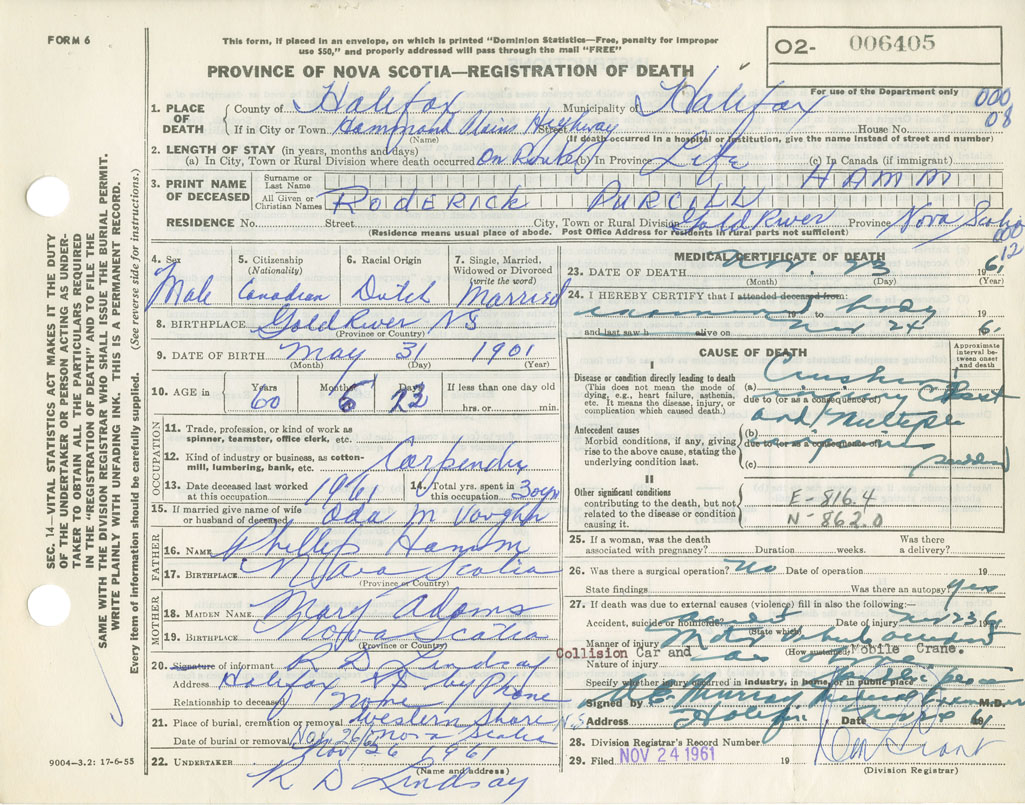 FORM 6
This form, if placed in an envelope, on which is printed "Dominion Statistics—Free, penalty for improper
use $50," and properly addressed will pass through the mail "FREE"
O2- 006405
PROVINCE OF NOVA SCOTIA—REGISTRATION OF DEATH
For use of the Department only
000
08
1. PLACE OF DEATH
County of Halifax Municipality of Halifax
If in City or Town Hammond Plains Highway Street House No.
(Name) (If death occurred in a hospital or institution, give the name instead of street and number)
2. LENGTH OF STAY (in years, months and days)
(a) In City, Town or Rural Division where death occurred On Route (b) In Province Life (c) In Canada (if immigrant)
3. PRINT NAME OF DECEASED
Surname or Last Name HAMM
All Given or Christian Names RODERICK PURCILL
RESIDENCE No. Street City, Town or Rural Division Gold River Province Nova Scotia
(Residence means usual place of abode. Post Office Address for residents in rural parts not sufficient)
000
12
4. Sex Male
5. Citizenship (Nationality) Canadian
6. Racial Origin Dutch
7. Single, Married, Widowed or Divorced (write the word) Married
8. BIRTHPLACE Gold River NS
(Province or Country)
9. DATE OF BIRTH May 31 1901
(Month) (Day) (Year)
10. AGE in Years 60 Months Days If less than one day old
hrs. or min.
OCCUPATION
11. Trade, profession, or kind of work as spinner, teamster, office clerk, etc.
12. Kind of industry or business, as cotton-mill, lumbering, bank, etc. Carpender
13. Date deceased last worked at this occupation 1961
14. Total yrs. spent in this occupation 30 yrs
15. If married give name of wife or husband of deceased Oda M Voughn
FATHER
16. NAME Phillip Hamm
17. BIRTHPLACE Nova Scotia
(Province or Country)
MOTHER
18. MAIDEN NAME Mary Adams
19. BIRTHPLACE Nova Scotia
(Province or Country)
20. Signature of informant R D Lindsay
Address Halifax NS by Phone
Relationship to deceased None
21. Place of burial, cremation or removal Western Shore
Nova Scotia
Date of burial or removal Nov 26 1961
22. UNDERTAKER R D Lindsay
(Name and address)
9004-3.2: 17-6-55
MEDICAL CERTIFICATE OF DEATH
23. DATE OF DEATH Nov 23 1961
(Month) (Day) (Year)
24. I HEREBY CERTIFY that I attended deceased from:
examined body 19 to 19
and last saw h alive on Nov 24 61
CAUSE OF DEATH
Approximate interval between onset and death
I
Disease or condition directly leading to death
(This does not mean the mode of dying, e.g., heart failure, asthenia, etc. It means the disease, injury, or complication which caused death.)
(a) Crushing injury Chest
due to (or as a consequence of)
and Multiple
Antecedent causes
Morbid conditions, if any, giving rise to the above cause, stating the underlying condition last.
(b) injuries
due to (or as a consequence of)
(c) sudden
II
Other significant conditions
contributing to the death, but not related to the disease or condition causing it.
E-816.4
N-862.0
25. If a woman, was the death associated with pregnancy? Duration weeks. Was there a delivery?
26. Was there a surgical operation? No Date of operation 19
State findings Was there an autopsy? Yes
27. If death was due to external causes (violence) fill in also the following:—
Accident, suicide or homicide? Date of injury Nov 23 61
(State which)
Manner of injury Motor vehicle occupant
(How sustained)
Collision Car and Mobile Crane.
Nature of injury
Specify whether injury occurred in industry, in home, or in public place
Signed by M.D.
Address Halifax N.S Date 61
28. Division Registrar's Record Number
29. Filed NOV 24 1961 19
(Division Registrar)
SEC. 14—VITAL STATISTICS ACT MAKES IT THE DUTY
OF THE UNDERTAKER OR PERSON ACTING AS UNDER-
TAKER TO OBTAIN ALL THE PARTICULARS REQUIRED
IN THE "REGISTRATION OF DEATH" AND TO FILE THE
SAME WITH THE DIVISION REGISTRAR WHO SHALL ISSUE THE BURIAL PERMIT.
WRITE PLAINLY WITH UNFADING INK. THIS IS A PERMANENT RECORD.
Every item of information should be carefully supplied. (See reverse side for instructions.)